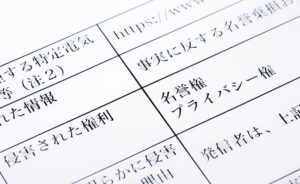 する特定電気
https://www
等（注２）
事実に反する名誉棄損お
れた情報
名誉権
プライバシー権
侵害された権利
発信者は、上記
らかに侵害
理由